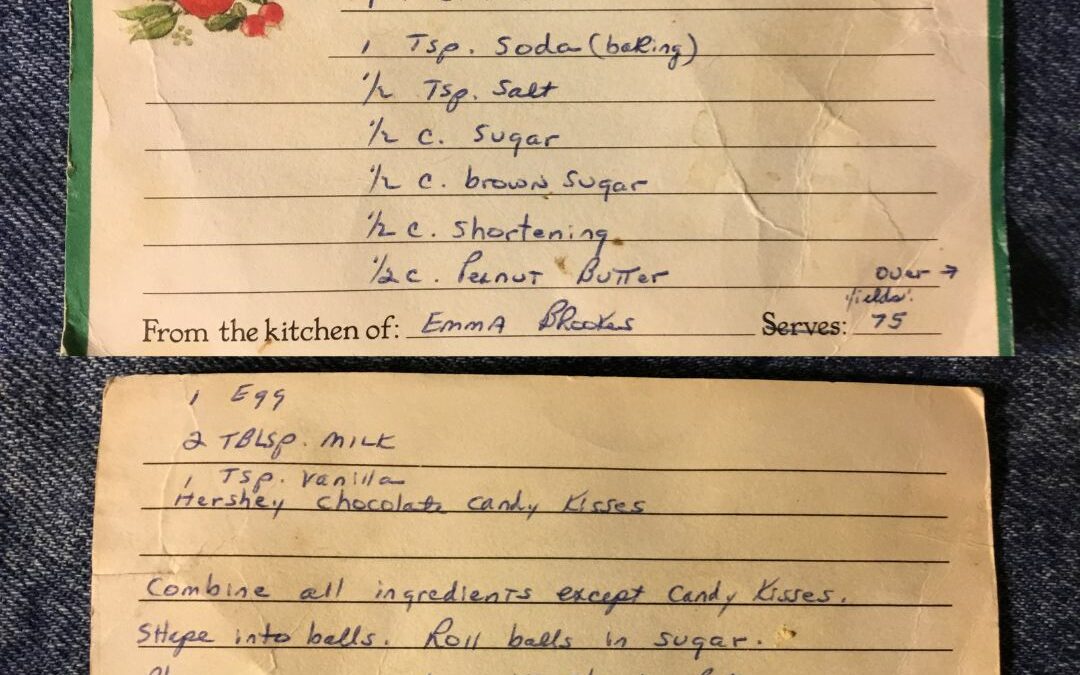 1 Tsp. Soda (baking)
1/2 Tsp. Salt
1/2 c. Sugar
1/2 c. brown Sugar
1/2 c. Shortening
1/2 c. Peanut Butter
over →
yields:
From the kitchen of: Emma Brookes Serves: 75
1 Egg
2 TBLsp. Milk
1 Tsp. Vanilla
Hershey chocolate candy Kisses
Combine all ingredients except Candy Kisses.
Shape into balls. Roll balls in sugar.